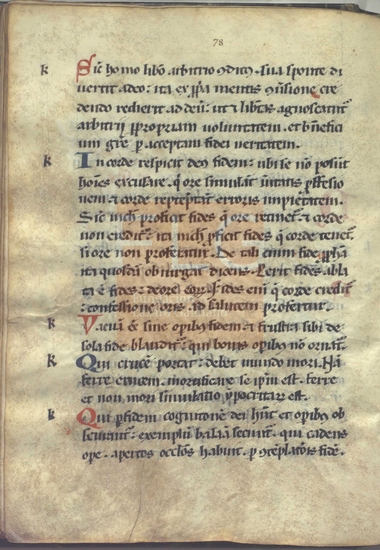 78
k Sic homo libo arbitrio ɔditꝰ. sua sponte di
uertit a deo: ita ex ꝓpa mentis ɔuersione cre
dendo recurrit ad deū: ut et libtas agnoscatur
arbitrii ꝑ propriam voluntatem. et bn̄efici
um gr̄e ꝑ acceptam fidei ueritatem.
k In corde respicit deus fidem: ubi se nō possūt
hoīes excusare. q̄ ore simulāt ueritatis ꝓfessio
nem: et corde reteptāt erroris impietatem.
Sic nich proficit fides q̄ ore retinet: et corde
non credit: ita nich ꝓficit fides q̄ corde tenet
si ore non proferatur. De tali enim fide ꝓpha
ita quosdā obiurgat dicens. Perit fides. abla
ta ē fides: de ore eoꝝ. Fides eni q̄ corde credit
confessione oris. ad salutem profertur.
k Vacuā eē sine opibꝰ fidem: et frustra sibi de
sola fide blandit: qui bonis opibꝰ nō ornat.
k Qui crucē portat: debet mundo mori. Nā
ferre crucem. mortificare se ipm est. ferre
et non mori simulatio ypocritarum est.
k Qui ꝑ fidem cognitionē dei hn̄t et opibꝰ ob
scurient: exemplū balaā secunt. qui cadens
ope. aptos occlos habuit. ꝑ ɔtēplatōis fidē.